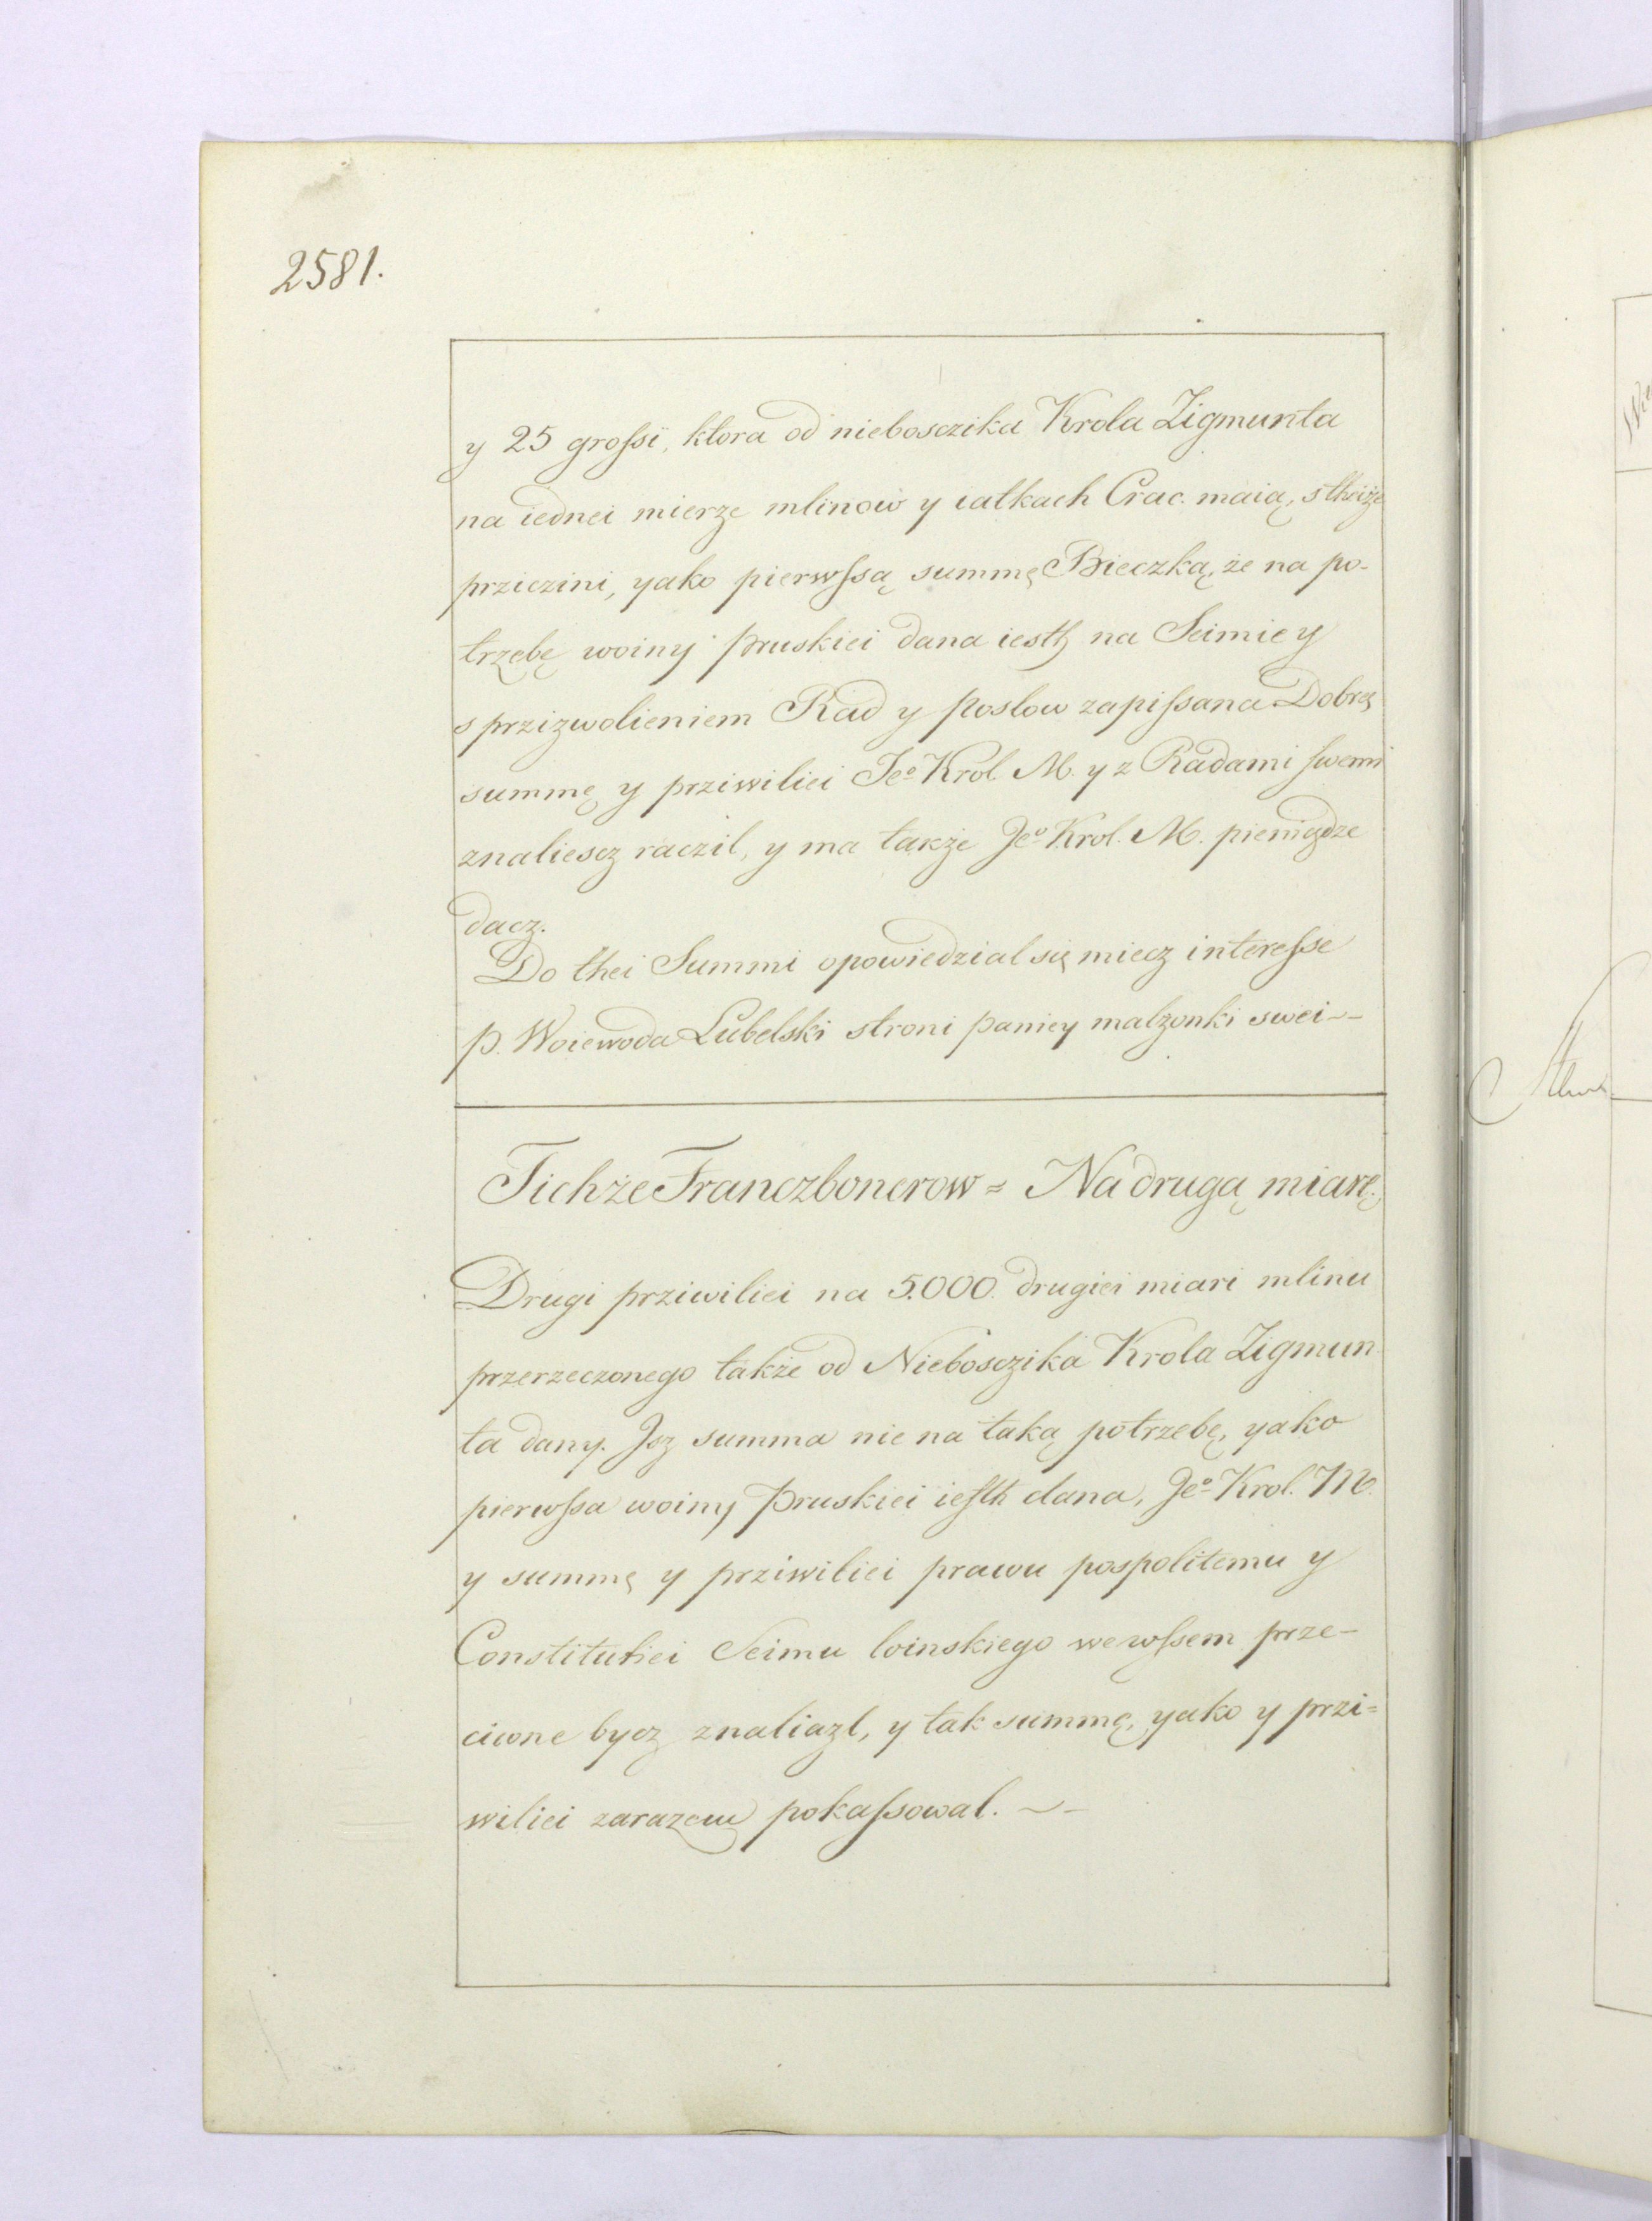 2581.
y 25 grossi, ktora od nieboszczika Krola Zigmunta
na iednei mierze mlinow y iatkach Crac. maią, s theiże
prziczini, yako pierwssą summę Bieczką, że na po-
trzebę woiny pruskiei dana iesth na Seimie y
s przizwolieniem Rad y posłow zapissana Dobrą
summę y prziwiliei Jeo Krol. M. y z Radami swemi
znaliescz raczil, y ma także Jeo Krol. M. pieniądze
dacz.
Do thei Summi opowiedzial się miecz interesse
p. Woiewoda Lubelski stroni paniey malzonki swei
Tichże Franczbonerow = Na drugą miarę
Drugi prziwiliei na 5.000. drugiei miari mlinu
przerzeczonego także od Nieboszczika Krola Zigmun
ta dany. Isz summa nie na taką potrzebę, yako
pierwssa woiny Pruskiei iesth dana, Jeo Krol. M.
y summę y prziwiliei prawu pospolitemu y
Constitutiei Seimu loinskiego we wssem prze-
ciwne bycz znaliazl, y tak summę, yako y przi=
wiliei zarazem pokassowal.